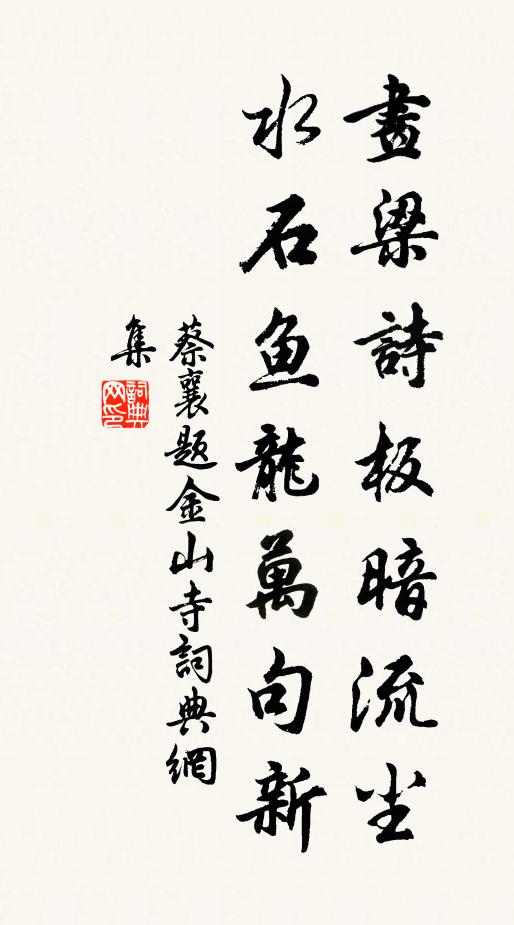 畫梁詩板暗流尘
水石鱼龍萬句新
蔡襄题金山寺詞典網
集
詞典
网印